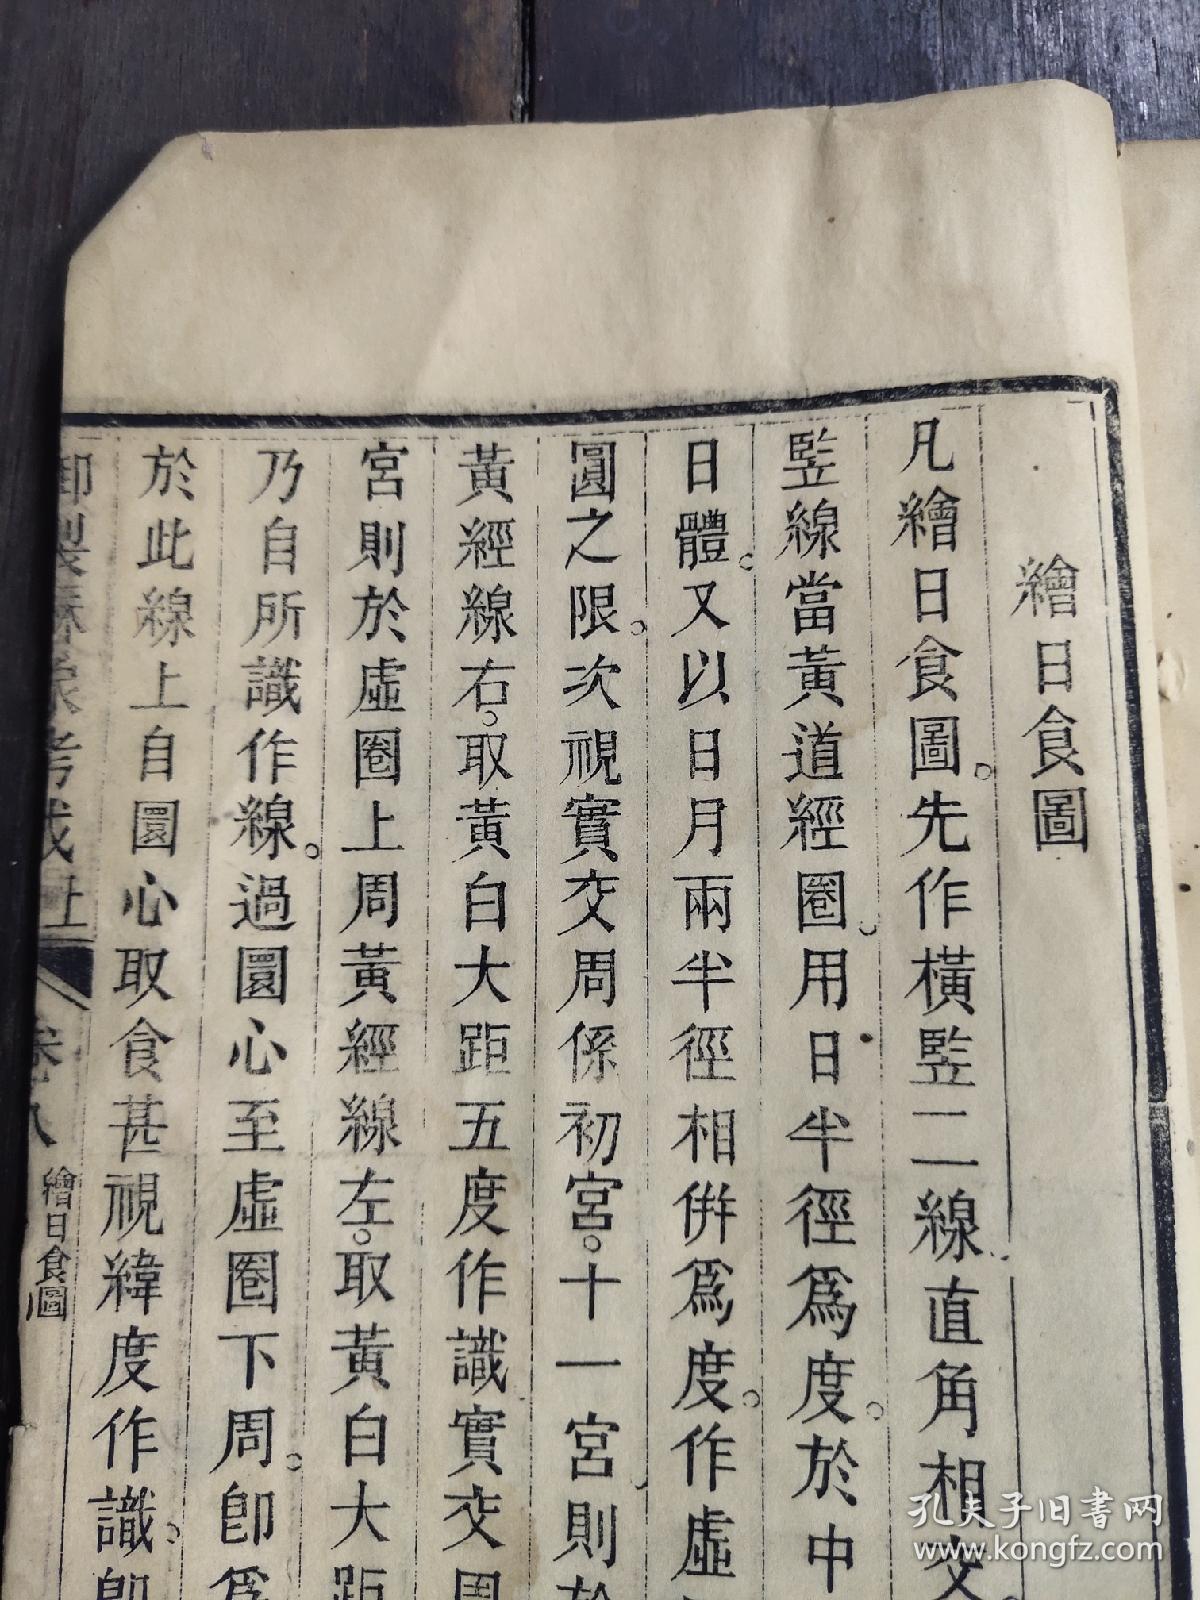 繪日食圖
凡繪日食圖。先作橫竪二線直角相交
竪線當黃道經圈。用日半徑爲度。於中
日體。又以日月兩半徑相併爲度。作虛
圓之限。次視實交周係初宮。十一宮則於
黃經線右。取黃白大距五度作識實交周
宮則於虛圈上周黃經線左。取黃白大距
乃自所識作線。過圜心至虛圈下周。卽爲
於此線上自圜心取食甚視緯度作識。卽
御製厤象考成 上
卷八
繪日食圖
孔夫子旧書网
www.kongfz.com